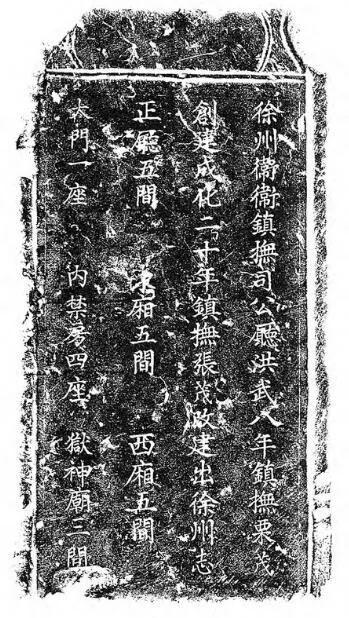 徐州衛衛鎮撫司公廳洪武八年鎮撫栗茂
創建成化二十年鎮撫張茂改建出徐州志
正廳五間 東廂五間 西廂五間
大門一座 內禁房四座 獄神廟三間